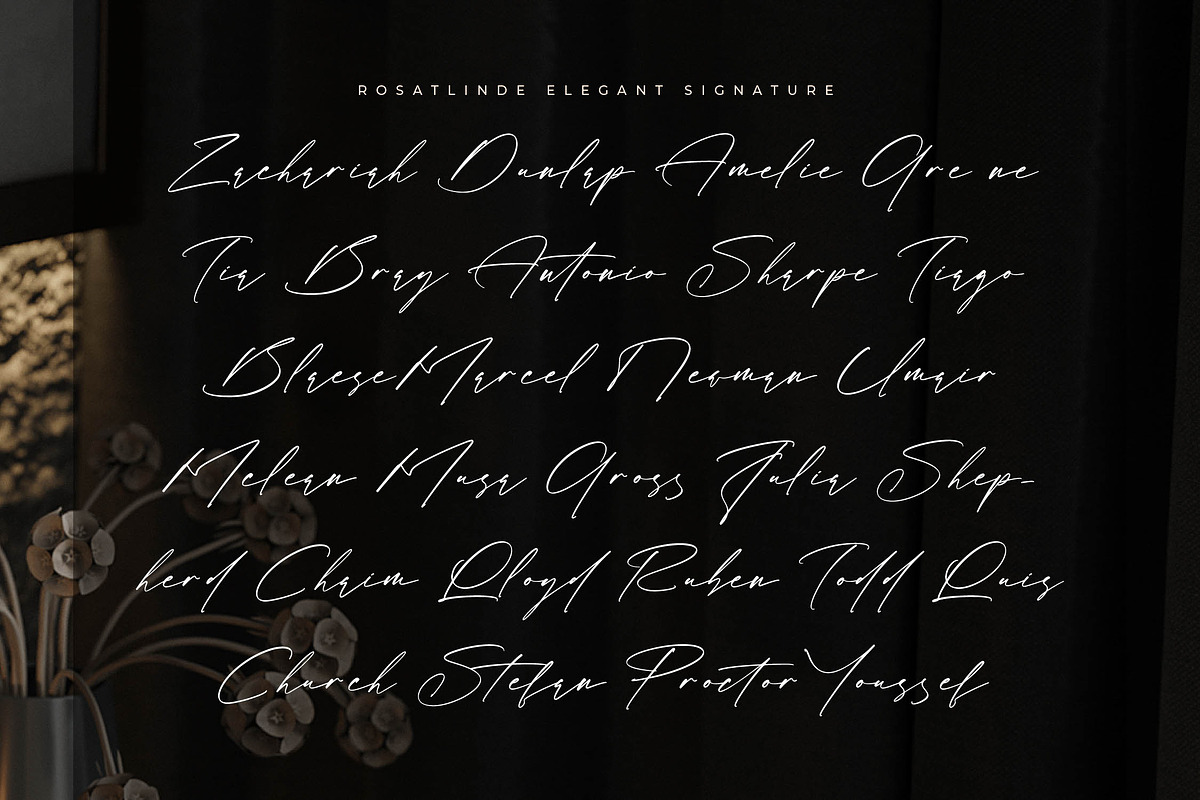 ROSATLINDE ELEGANT SIGNATURE
Zachariah Dunlap Amelie Gre ne
Tia Bray Antonio Sharpe Tiago
BlaeseMarcel Newman Umair
Mclean Musa Gross Julia Shep-
herd Chaim Lloyd Ruben Todd Luis
Church Stefan Proctor Youssef